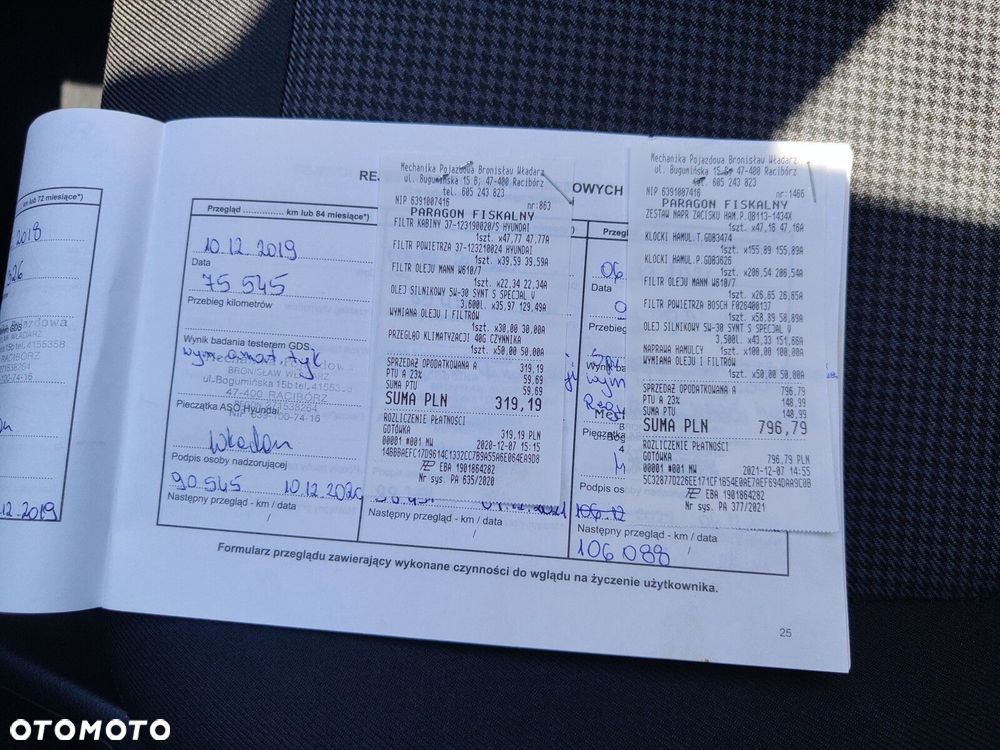 km lub 72 miesiące*)
2018
12.2019
REJ
OWYCH
Przegląd ................ km lub 84 miesiące*)
10.12.2019
Data
75 545
Przebieg kilometrów
Wynik badania testerem GDS
BRONISŁAW
ul.Bogumińska 15b
47-400 RACIBÓRZ
Pieczątka ASO Hyundai
Podpis osoby nadzorującej
90.545 10.12.2020
Następny przegląd - km / data
/
Mechanika Pojazdowa Bronisław Władarz
ul. Bogumińska 15 B; 47-400 Racibórz
tel. 605 243 823
NIP 6391007416 nr:863
PARAGON FISKALNY
FILTR KABINY 37-123190020/S HYUNDAI
1szt. x47,77 47,77A
FILTR POWIETRZA 37-123210024 HYUNDAI
1szt. x39,59 39,59A
FILTR OLEJU MANN W610/7
1szt. x22,34 22,34A
OLEJ SILNIKOWY 5W-30 SYNT S SPECJAL V
3,600l. x35,97 129,49A
WYMIANA OLEJU I FILTRÓW
1szt. x30,00 30,00A
PRZEGLĄD KLIMATYZACJI 40G CZYNNIKA
1szt. x50,00 50,00A
SPRZEDAŻ OPODATKOWANA A 319,19
PTU A 23% 59,69
SUMA PTU 59,69
SUMA PLN 319,19
ROZLICZENIE PŁATNOŚCI
GOTÓWKA 319,19 PLN
00001 #001 MW 2020-12-07 15:15
EBA 1901864282
Nr sys. PA 635/2020
Następny przegląd - km / data
/
Przegl
06.
Data
Przebieg
Pieczątka
Podpis oso
Mechanika Pojazdowa Bronisław Władarz
ul. Bogumińska 15 B; 47-400 Racibórz
tel. 605 243 823
NIP 6391007416 nr:1466
PARAGON FISKALNY
ZESTAW NAPR ZACISKU HAM.P.QB113-1434X
1szt. x47,16 47,16A
KLOCKI HAMUL.T.GDB3474
1szt. x155,89 155,89A
KLOCKI HAMUL.P.GDB3626
1szt. x206,54 206,54A
FILTR OLEJU MANN W610/7
1szt. x26,65 26,65A
FILTR POWIETRZA BOSCH F026400137
1szt. x58,89 58,89A
OLEJ SILNIKOWY 5W-30 SYNT S SPECJAL V
3,500l. x43,33 151,66A
NAPRAWA HAMULCY 1szt. x100,00 100,00A
WYMIANA OLEJU I FILTRÓW
1szt. x50,00 50,00A
SPRZEDAŻ OPODATKOWANA A 796,79
PTU A 23% 148,99
SUMA PTU 148,99
SUMA PLN 796,79
ROZLICZENIE PŁATNOŚCI
GOTÓWKA 796,79 PLN
00001 #001 MW 2021-12-07 14:55
EBA 1901864282
Nr sys. PA 377/2021
Następny przegląd - km / data
106 088 /
Formularz przeglądu zawierający wykonane czynności do wglądu na życzenie użytkownika.
25
OTOMOTO